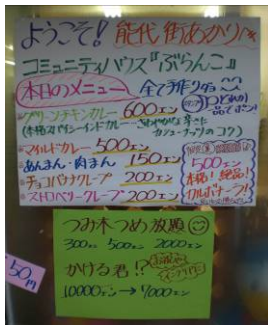 ようこそ! 能代 街あかり
コミュニティハウス『ぶらんこ』
本日のメニュー 全て手作りです
グリーンチキンカレー 600エン
マイルドカレー 500エン
あんまん・肉まん 150エン
チョコバナナクレープ 200エン
ストロベリークレープ 200エン
500エン
本格! 絶品!
カルボナーラ!
つみ木つめ放題
300エン 500エン 2000エン
かける君!?
10000エン→7000エン
50円